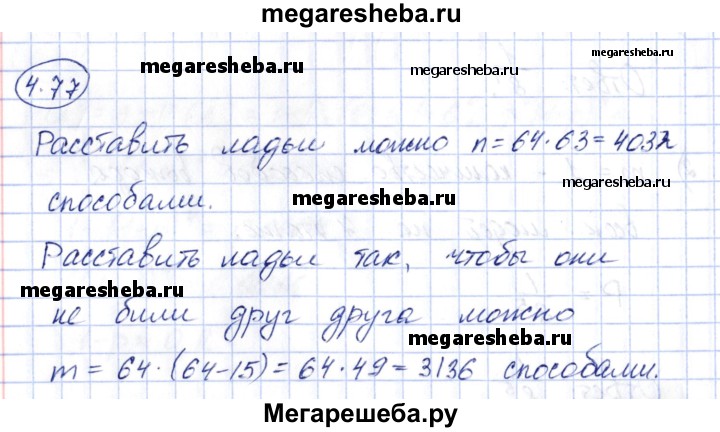 megaresheba.ru
megaresheba.ru
megaresheba.ru
megaresheba.ru
4.77
Расставить ладьи можно n=64·63=4032
megaresheba.ru
способами.
megaresheba.ru
Расставить ладьи так, чтобы они
megaresheba.ru
не били друг друга можно
megaresheba.ru
m = 64·(64-15)=64·49=3136 способами.
Мегарешеба.ру